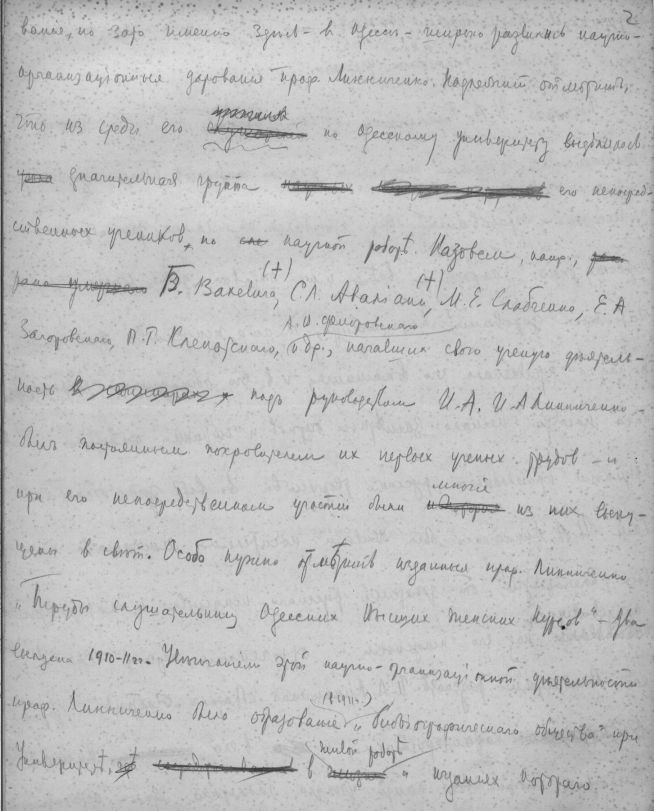 2
но зато именно здесь - в Одессе - широко развились научно-
организаціонныя дарованія проф. Линниченко. Надлежит отметить,
что из среды его по одесскому университету выделилась
значительная группа его непосред-
ственных учеников, по научной работѣ. Назовем, напр.,
Б. Вакевича, (+) С.Л. Авалiани, (+) М.Е. Слабченко, Е.А
Загоровскаго, П.Г. Клепатскаго, А.В. Флоровскаго и др., начавших свою ученую деятель-
ность под руководством И.А. И.А Линниченко -
был постоянным покровителем их первых ученых трудов - и
при его непосредственном участіи были многія из них выпу-
щены в свѣт. Особо нужно отмѣтить изданныя проф. Линниченко
"Труды слушательниц Одесских Высших Женских Курсов" - два
выпуска 1910-11 гг. этой научно-организаціонной деятельности
проф. Линниченко было образованіе (в 1911 г.) "Библіографическаго общества" при
Университетѣ, в живой работѣ и изданіях котораго